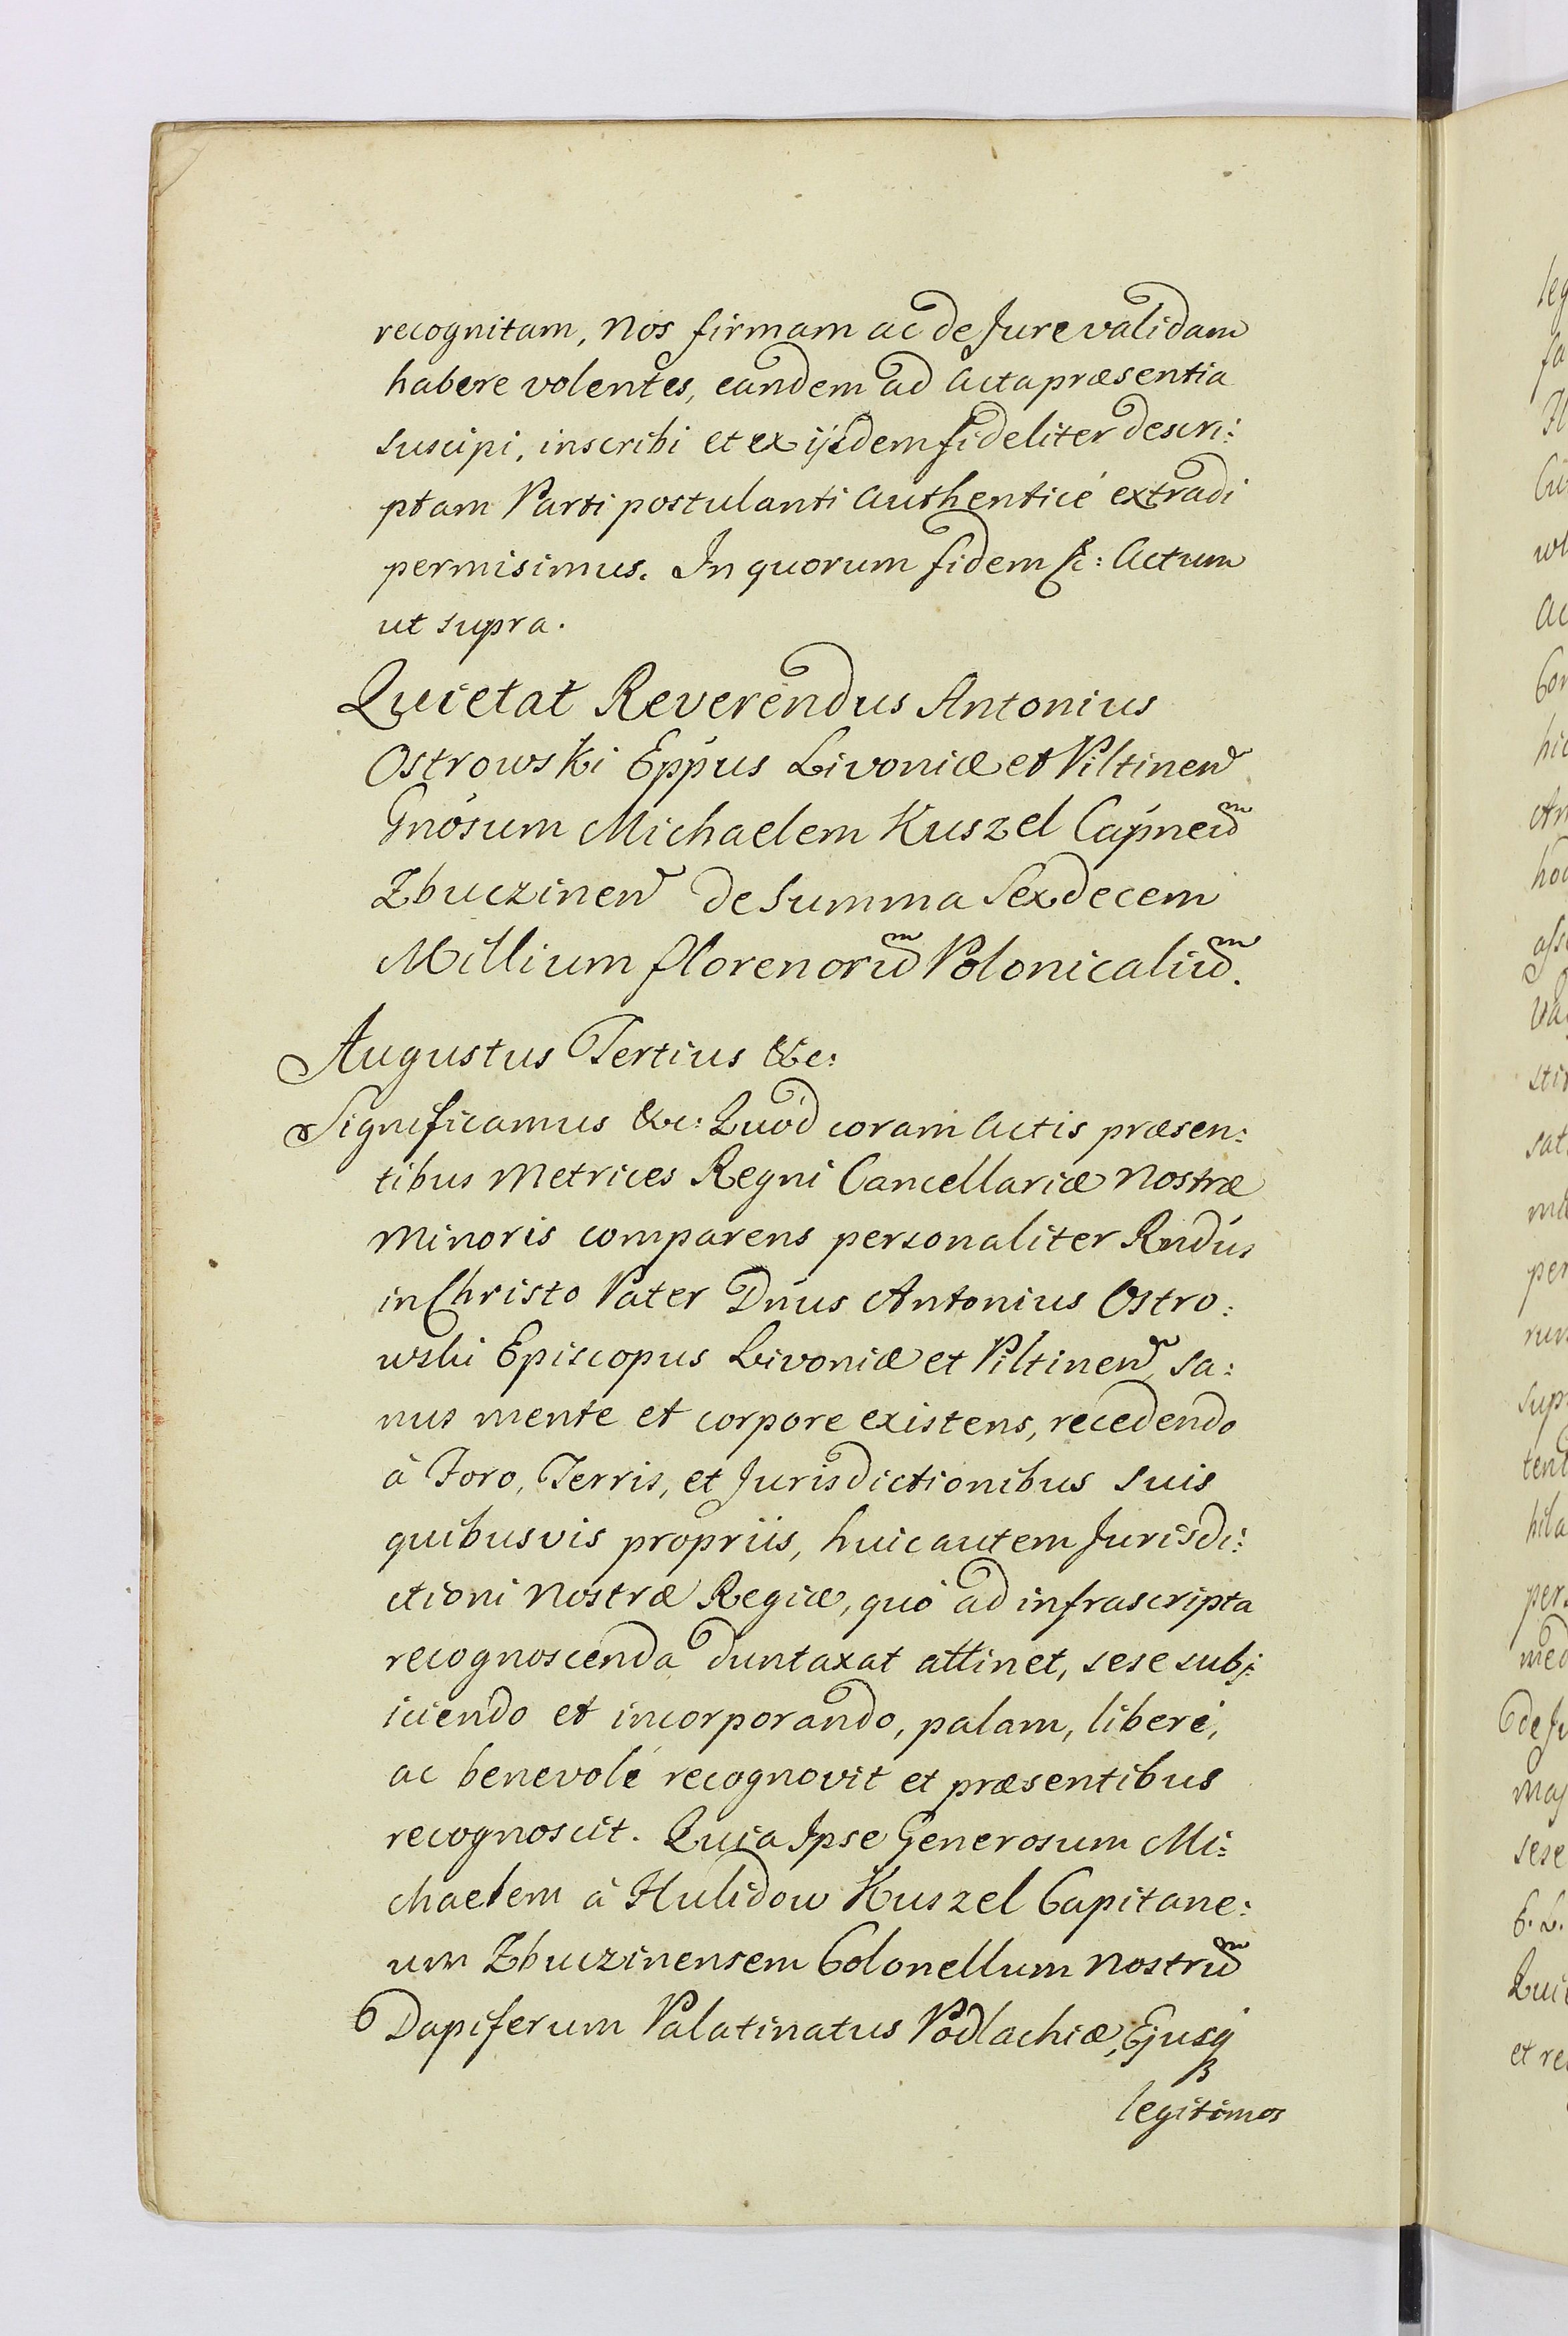 recognitam, Nos firmam ac de Jure validam
habere volentes, eandem ad Acta præsentia
suscipi, inscribi et ex ijsdem fideliter descri:
ptam Parti postulanti Authenticè extradi
permisimus. In quorum fidem &c: Actum
ut supra.
Quietat Reverendus Antonius
Ostrowski Eppus Livoniæ et Piltinen
Gnosum Michaelem Kuszel Capneum
Zbuczinen de Summa Sexdecem
Millium florenorum Polonicalium.
Augustus Tertius &c:
Significamus &c: Quòd coram Actis præsen:
tibus Metrices Regni Cancellariæ Nostræ
Minoris comparens personaliter Rndus
in Christo Pater Dnus Antonius Ostro:
wski Episcopus Livoniæ et Piltinen, sa:
nus mente et corpore existens, recedendo
à Foro, Terris, et Jurisdictionibus suis
quibusvis propriis, huic autem Jurisdi:
ctioni Nostræ Regiæ, quò ad infrascripta
recognoscenda duntaxat attinet, sese subj:
iciendo et incorporando, palam, liberè,
ac benevolè recognovit et præsentibus
recognoscit. Quia Ipse Generosum Mi:
chaelem à Hulidow Kuszel Capitane:
um Zbuczinensem Colonellum Nostrum
Dapiferum Palatinatus Podlachiæ, Ejusq
legitimos